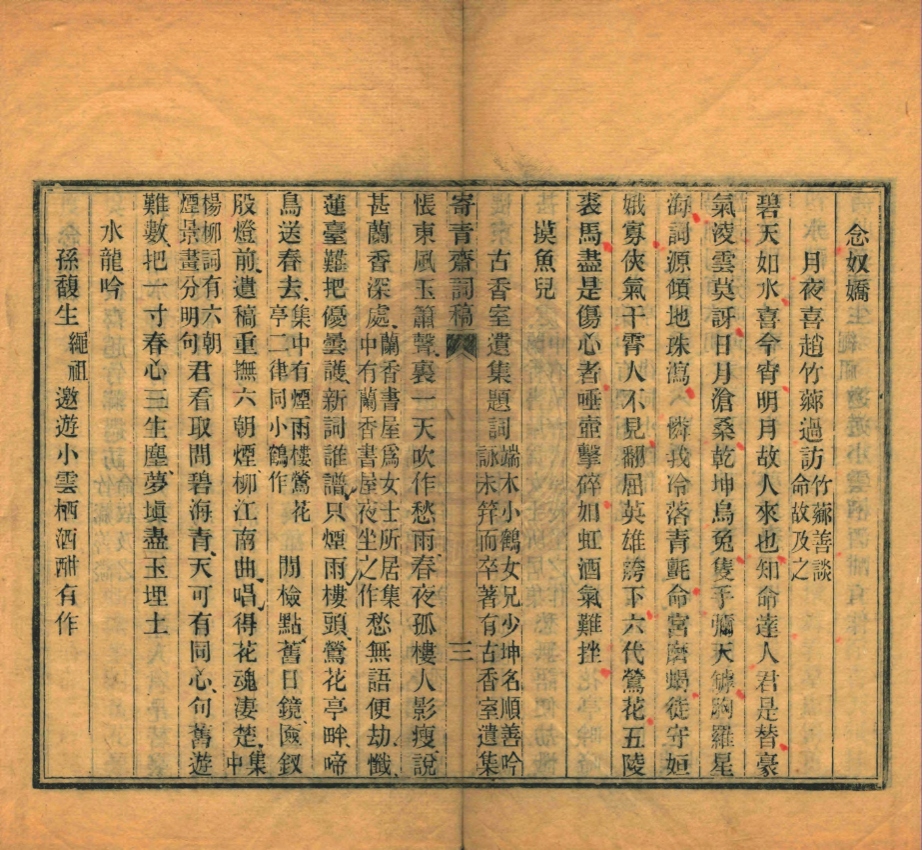 念奴嬌
月夜喜趙竹薌過訪竹薌善談命故及之
碧天如水喜今宵明月故人來也知命達人君是替豪
氣淩雲莫訝日月滄桑乾坤烏兔隻手彌天罅胸羅星
海詞源傾地珠瀉 憐我冷落青氈命宮磨蝎徒守姮
娥寡俠氣干霄人不見翻屈英雄誇下六代鶯花五陵
裘馬盡是傷心者唾壺擊碎如虹酒氣難挫
摸魚兒
古香室遺集題詞端木小鶴女兄少坤名順善吟詠未笄而卒著有古香室遺集
寄青齋詞稿 三
悵東風玉簫聲裏一天吹作愁雨春夜孤樓人影瘦說
甚蘭香深處蘭香書屋為女士所居集中有蘭香書屋夜坐之作愁無語便劫懺
蓮臺難把優曇護新詞誰譜只煙雨樓頭鶯花亭畔啼
鳥送春去集中有煙雨樓鶯花亭二律同小鶴作 閒檢點舊日鏡奩釵
股燈前遺稿重撫六朝煙柳江南曲唱得花魂淒楚集中
楊柳詞有六朝煙景畫分明句君看取問碧海青天可有同心句舊遊
難數把一寸春心三生塵夢塡盡玉埋土
水龍吟
孫馥生繩祖邀遊小雲栖酒酣有作